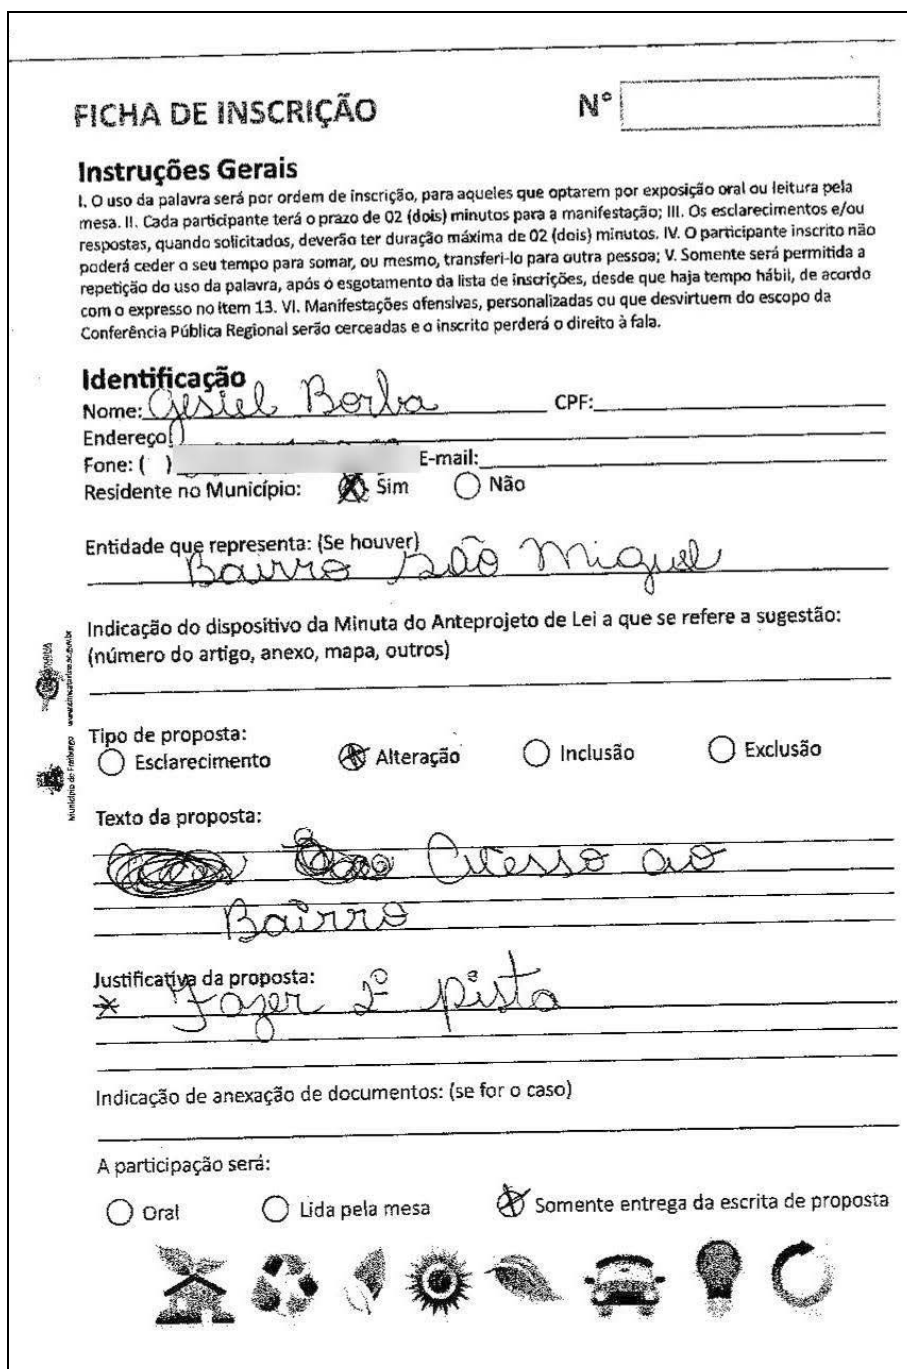 FICHA DE INSCRIÇÃO
Nº
Instruções Gerais
I. O uso da palavra será por ordem de inscrição, para aqueles que optarem por exposição oral ou leitura pela
mesa. II. Cada participante terá o prazo de 02 (dois) minutos para a manifestação; III. Os esclarecimentos e/ou
respostas, quando solicitados, deverão ter duração máxima de 02 (dois) minutos. IV. O participante inscrito não
poderá ceder o seu tempo para somar, ou mesmo, transferi-lo para outra pessoa; V. Somente será permitida a
repetição do uso da palavra, após o esgotamento da lista de inscrições, desde que haja tempo hábil, de acordo
com o expresso no item 13. VI. Manifestações ofensivas, personalizadas ou que desvirtuem do escopo da
Conferência Pública Regional serão cerceadas e o inscrito perderá o direito à fala.
Identificação
Nome: Gesiel Borba CPF:
Endereço:
Fone: ( ) E-mail:
Residente no Município: X Sim Não
Entidade que representa: (Se houver)
Bairro São Miguel
Indicação do dispositivo da Minuta do Anteprojeto de Lei a que se refere a sugestão:
(número do artigo, anexo, mapa, outros)
Tipo de proposta:
Esclarecimento X Alteração Inclusão Exclusão
Texto da proposta:
Acesso ao
Bairro
Justificativa da proposta:
* Fazer 2º pista
Indicação de anexação de documentos: (se for o caso)
A participação será:
Oral Lida pela mesa X Somente entrega da escrita de proposta
Município de Fraiburgo